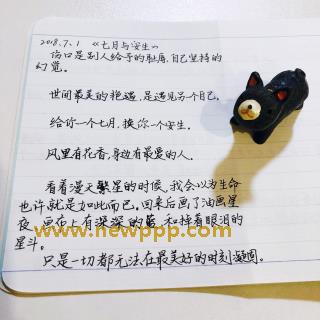 2018.7.1 《七月与安生》
伤口是别人给予的耻辱,自己坚持的
幻觉。
世间最美的艳遇,是遇见另个自己。
给你一个七月,换你一个安生。
风里有花香,身边有最爱的人。
看着漫天繁星的时候,我会以为生命
也许就是如此而已。回来后画了油画星
夜 画布上有深深的蓝 和掉着眼泪的
星斗。
www.newppp.com
只是一切都无法在最美好的时刻凝固。